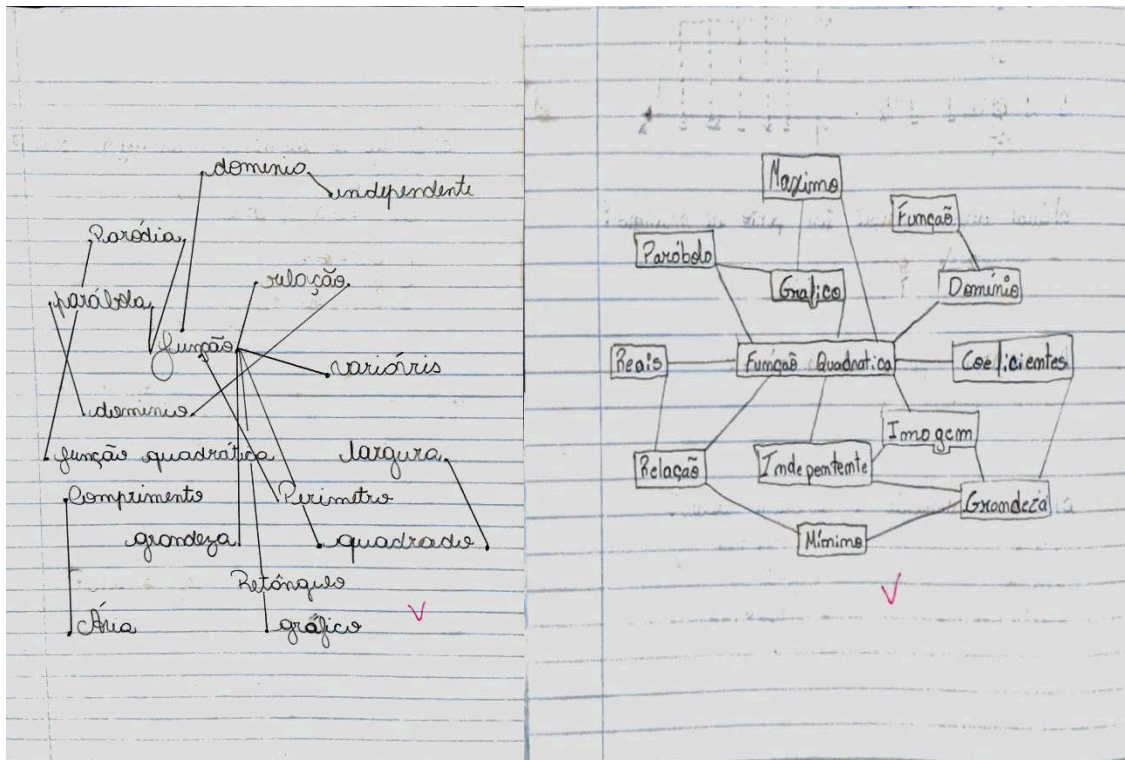 dominio
independente
Paródia
relação
parábola
função
variávris
dominio
função quadrática
largura
Comprimento
Perimetro
grandeza
quadrado
Retângulo
Ária
gráfico
Maximo
Função
Parábolo
Grafico
Domínio
Reais
Função Quadratica
Coeficientes
Imagem
Relação
Indepentente
Grandeza
Mínimo